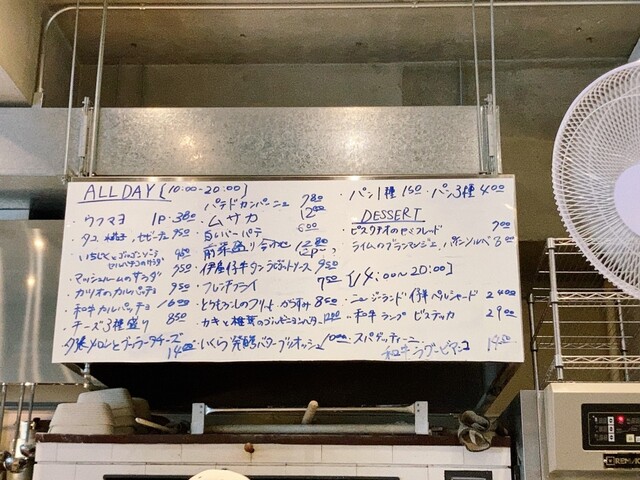 ALL DAY [10:00-20:00]
・ウフマヨ 1P・380
・タコ 950
980
・マッシュルームのサラダ 950
・カツオのカルパッチョ
・和牛カルパッチョ 1600
・チーズ3種盛り 850
夕張メロンとブッラータチーズ 1400
・パテドカンパーニュ 780
・ムサカ 1200
・白レバーパテ 600
・前菜盛り合わせ 1280
・仔牛タン ラビゴットソース 950
・フレンチフライ 750
・とうもろこしのフリット からすみ 850
・いくら発酵バターブリオッシュ 1000
・パン1種 150 ・パン3種 400
DESSERT
・ピスタチオのセミフレッド 700
・ライムのブランマンジェ、
[14:00~20:00]
・ニュージーランド仔羊 2400
・和牛ランプ ビステッカ 2900
・スパゲッティーニ
和牛ラグービアンコ